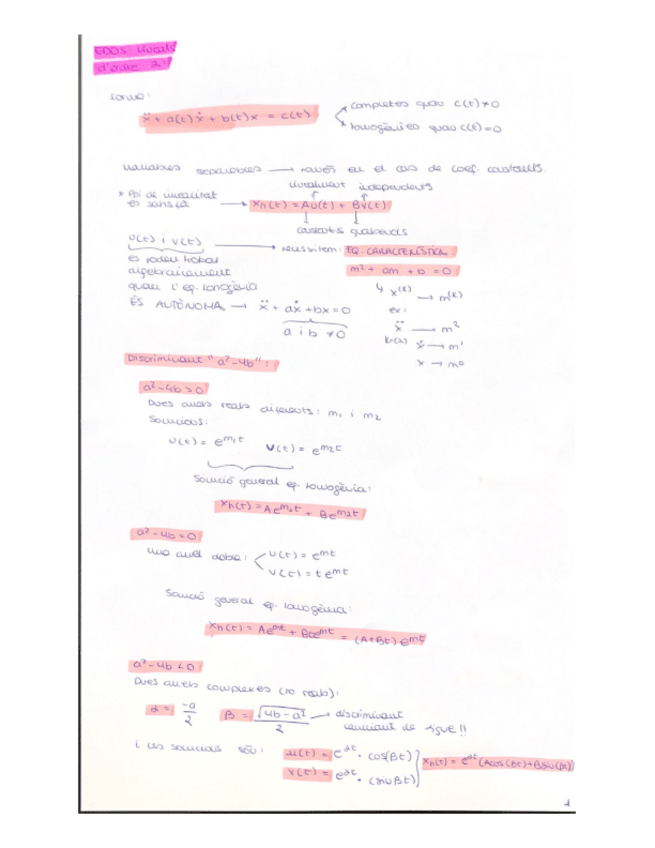 EDOs lineals
d'ordre 2:
forma:
ẍ + a(t)ẋ + b(t)x = c(t)
completes quan c(t)≠0
homogènies quan c(t)=0
variables separables → només en el cas de coef. constants.
linealment independents
* Ppi de linealitat
és satisfet → xh(t) = Au(t) + Bv(t)
constants qualsevols
u(t) i v(t) → necessitem: EQ. CARACTERÍSTICA
es poden trobar
m² + am + b = 0
algebraicament
quan l'eq. homogènia
ÉS AUTÒNOMA → ẍ + aẋ + bx = 0
a i b ≠ 0
x^(k) → m^(k)
ex:
ẍ → m²
ẋ → m¹
x → m⁰
Discriminant "a²-4b":
a²-4b>0
Dues arrels reals diferents: m₁ i m₂
Solucions:
u(t) = e^m₁t v(t) = e^m₂t
Solució general eq. homogènia:
xh(t) = Ae^m₁t + Be^m₂t
a²-4b=0
una arrel doble: u(t) = e^mt
v(t) = te^mt
Solució general eq. homogènia:
xh(t) = Ae^mt + Bte^mt = (A+Bt)e^mt
a²-4b<0
Dues arrels complexes (no reals):
α = -a/2 β = √(4b-a²)/2 → discriminant
canviant de signe!!
i les solucions són: u(t) = e^αt · cos(βt)
v(t) = e^αt · (sinβt)
xh(t) = e^αt (Acos(βt)+Bsin(βt))
1